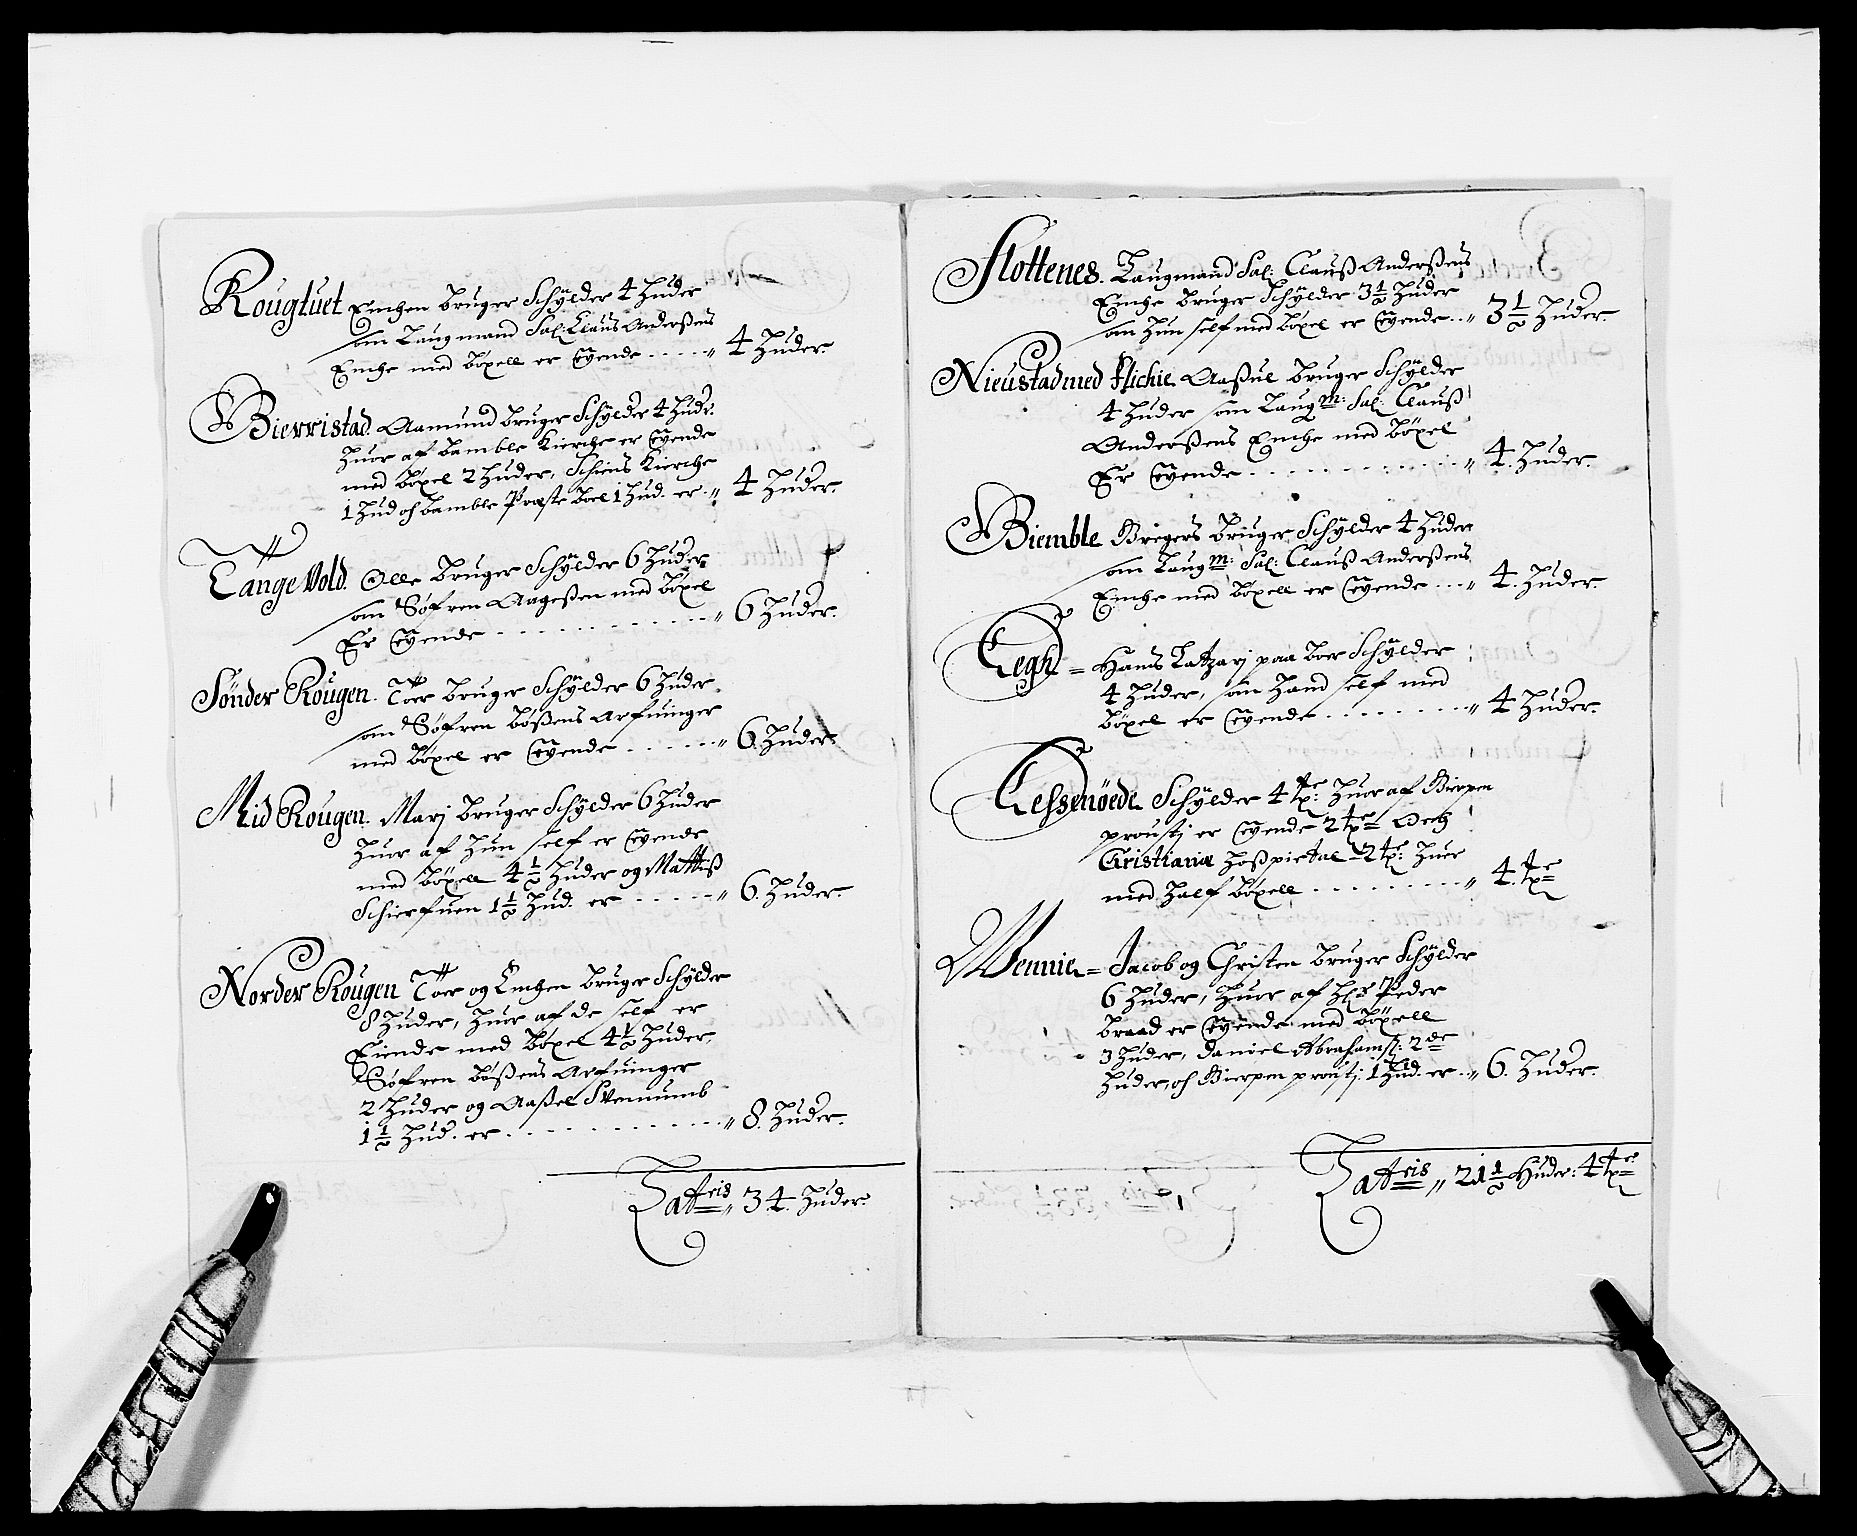 Rougtuet Enchen bruger Schÿlder 4 Huder
som Laugmand Sal: Claus Anderßens
Enche med böxell er Eyende . . . . . „ 4 Huder.
Bierristad. Aamund bruger Schÿlder 4 Hudr.
Huor af bamble Kierche er Eyende
med böxel 2 Huder, Schiens Kierche
1 Hud och bamble Præste boel 1 Hud. er „ 4 Huder.
Tange Vold. Olle bruger Schÿlder 6 Huder
som Söfren Aageßen med böxel
Er Eyende . . . . . . . . . . „ 6 Huder.
Sönder Rougen. Toer bruger Schÿlder 6 Huder
som Söfren bößens Arfuinger
med böxel er Eyende . . . . . „ 6. Huder.
Mid Rougen. Marj bruger Schÿlder 6 Huder
Huor af Hun self er Eyende
med böxell 4 1/2 Huder og Mattiß
Schierfuen 1 1/2 Hud. er . . . . . „ 6. Huder.
Norder Rougen Toer og Enchen bruger Schÿlder
8 Huder, Huor af de self er
Eiende med böxel 4 1/2 Huder,
Söfren bößens Arfuinger
2 Huder og Aaßel Svennumb
1 1/2 Hud. er . . . . . . . . . . „ 8. Huder.
Lattris „ 34. Huder.
Flottenes. Laugmand Sal: Clauß Anderßens
Enche bruger Schÿlder 3 1/2 Huder
som Hun self med böxel er Eyende . . „ 3 1/2 Huder.
Nieustad med Flichie Aaßul bruger Schÿlder
4 Huder som Laugm: Sal: Clauß
Anderßens Enche med böxel
Er Eyende . . . . . . . . . . „ 4. Huder.
Biemble Bregers bruger Schÿlder 4 Huder
som Laugm: Sal: Clauß Anderßens
Enche med böxell er Eyende . . . „ 4. Huder.
Eegh = Hans Latzarj paa boer Schÿlder
4 Huder, som Hand self med
böxel er Eyende . . . . . . . . „ 4 Huder.
Eessenöede Schÿlder 4 txe: Huor af Bierpen
proustj er Eyende 2 txe Och
Christiania Hoßpietal 2 txe: Huer
med Half böxell . . . . . . . . „ 4. txe
Wennie = Jacob og Christen bruger Schÿlder
6 Huder, Huor af Hr Peder
braad er Eyende med böxell
3 Huder, Daniel Abrahamß: 2de
Huder och Bierpen proustj: 1 Hud. er . „ 6. Huder.
Lattris „ 21 1/2 Huder: 4 txe